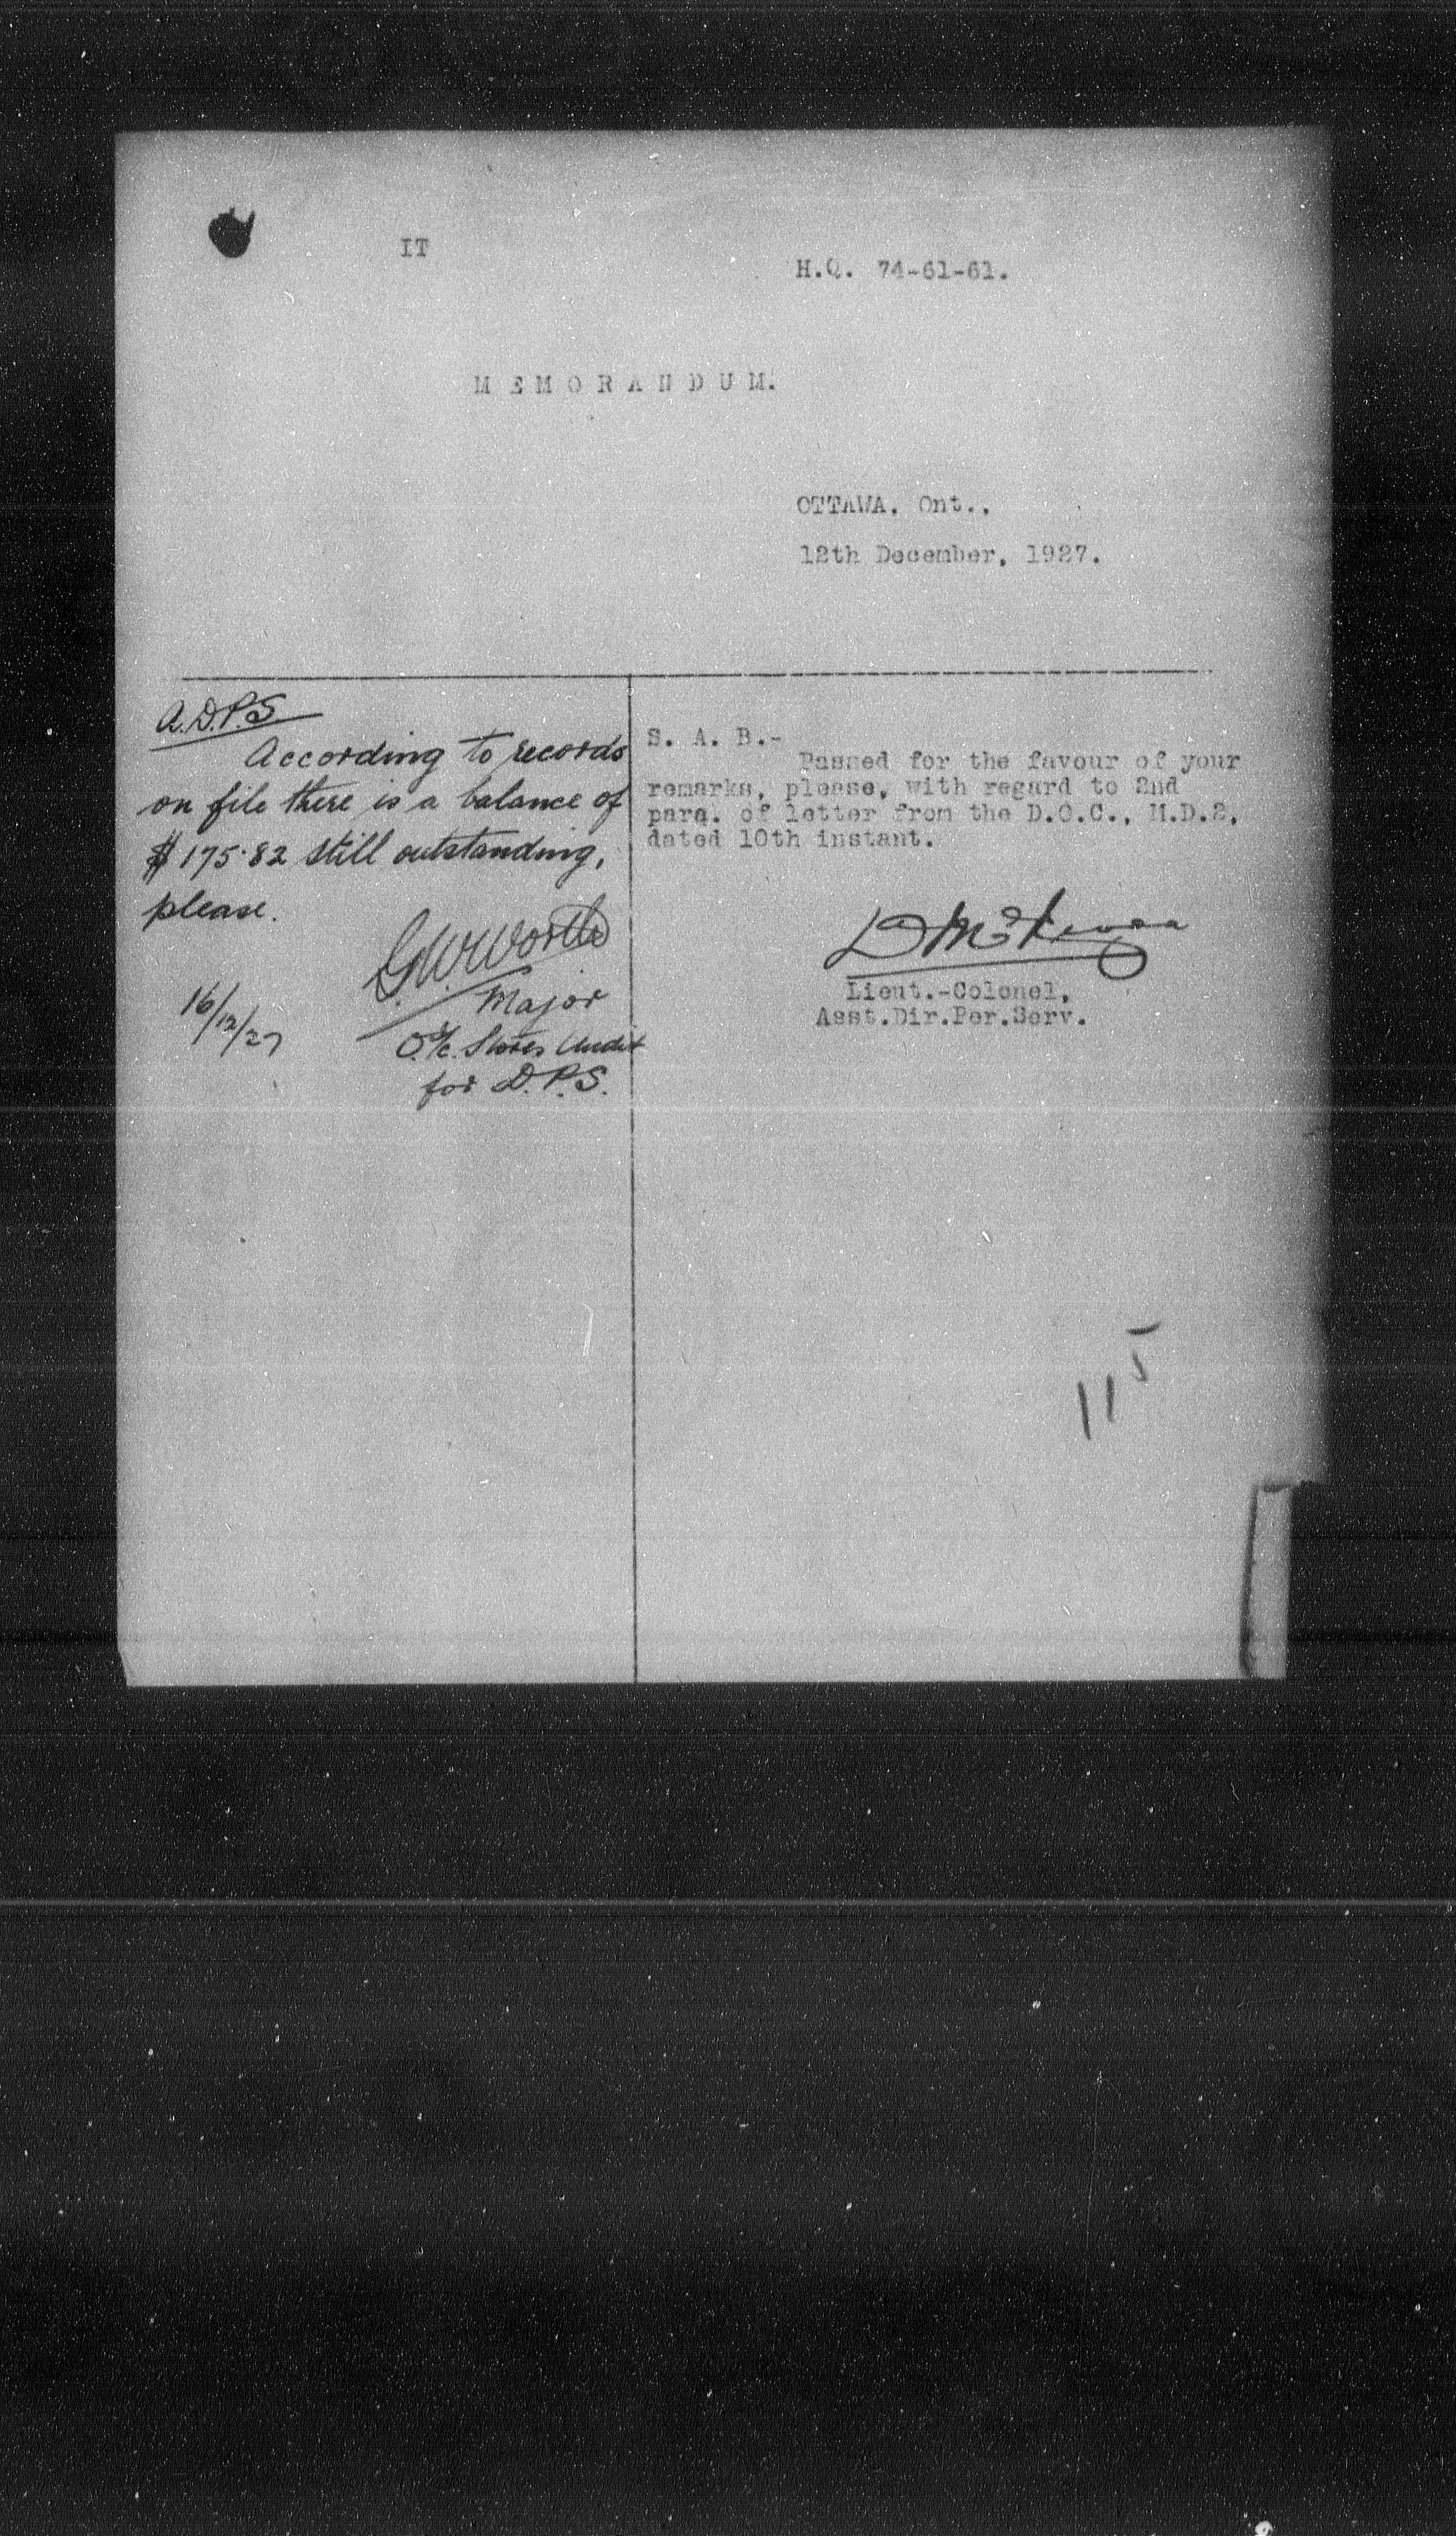 IT
H.Q. 74-61-61.
MEMORANDUM.
OTTAWA, Ont.,
12th December, 1927.
A.D.P.S
According to records
on file there is a balance of
$175.82 still outstanding,
please.
G.W.Worth
Major
O.i/c. Stores Audit
for D.P.S.
16/12/27
S. A. B.-
Passed for the favour of your
remarks, please, with regard to 2nd
para. of letter from the D.O.C., M.D.2,
dated 10th instant.
Lieut.-Colonel,
Asst.Dir.Per.Serv.
115